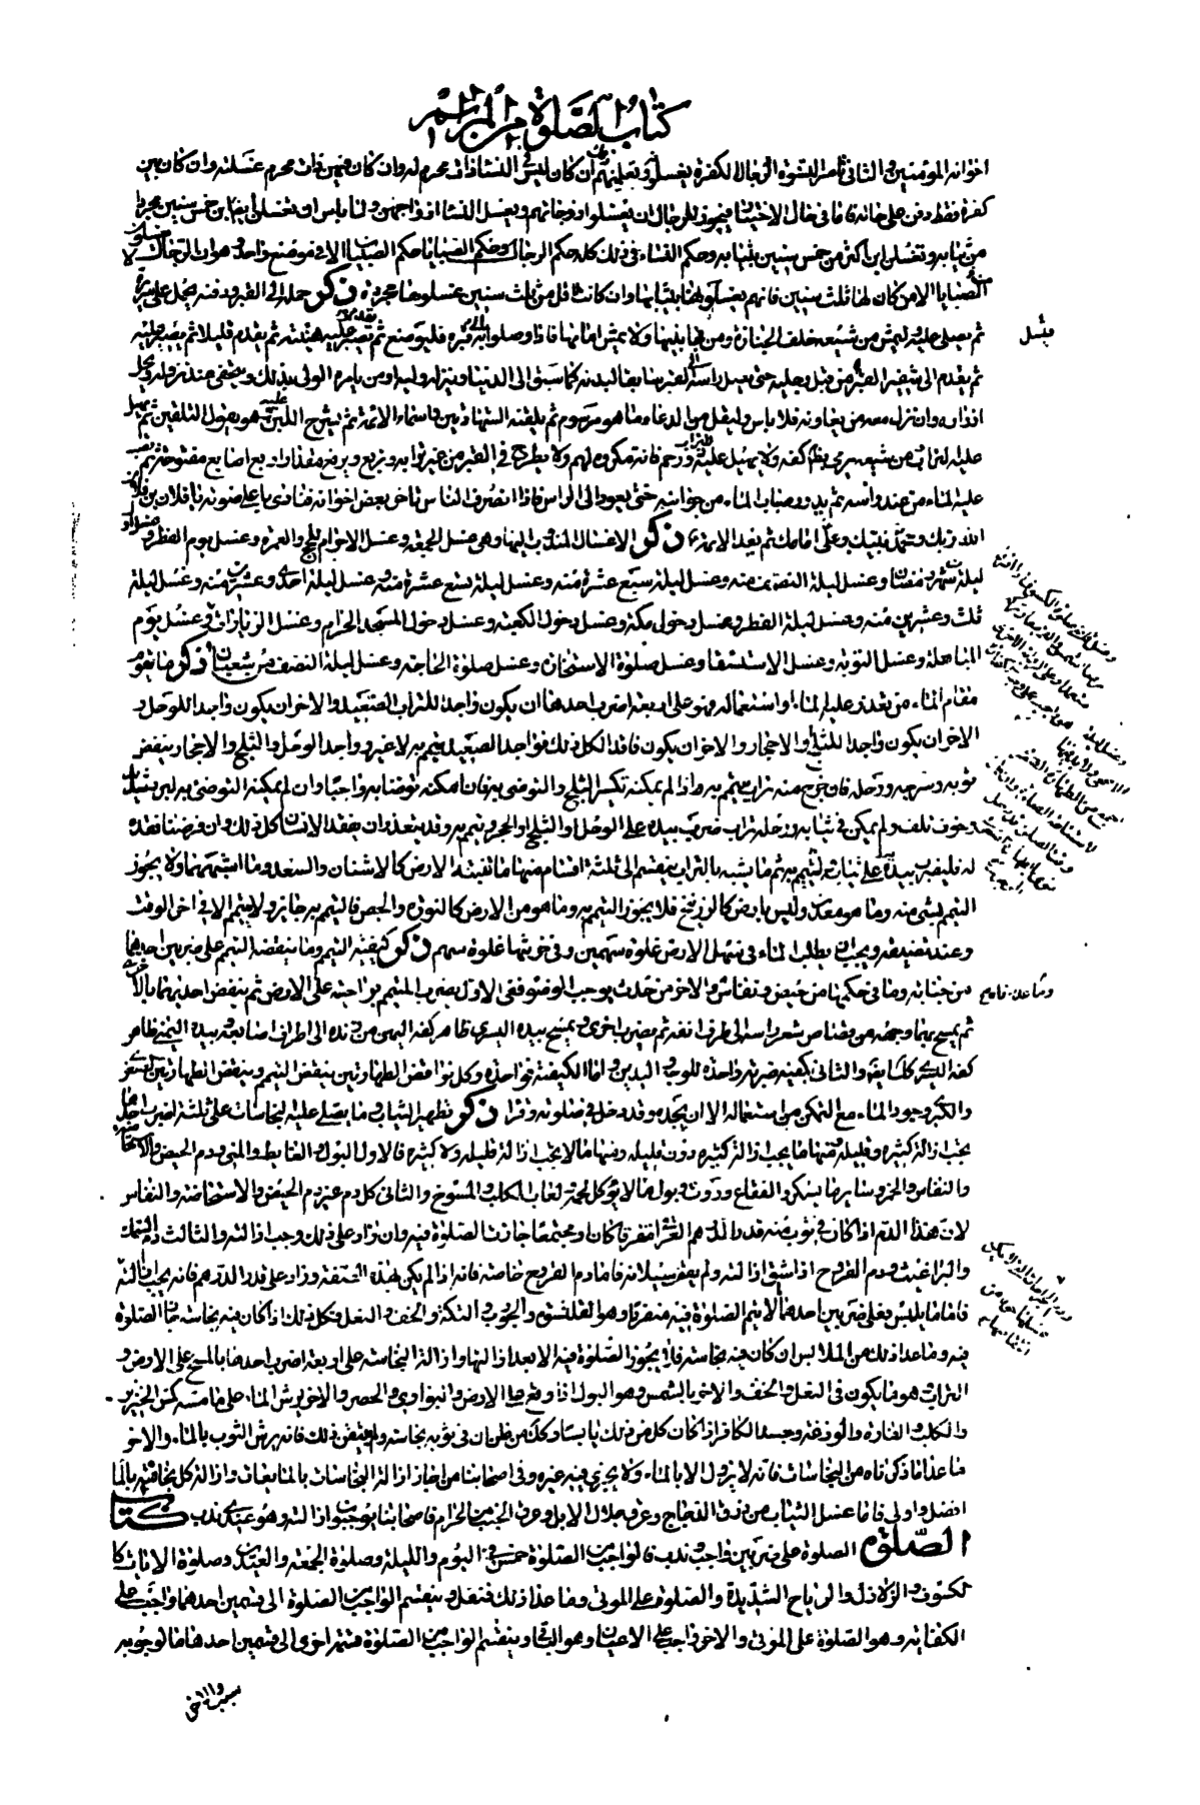 كتاب الصلوة من المراسم
اخوانه المؤمنين والثاني يأمر النسوة الرجال الكفرة يغسلوه بتعليمهم ان كان ليس في النساء ذات محرم له وان كان فيهن ذات محرم غسلنه وان كان بين
كفرة فقط دفن على حاله فاما في حال الاختيار فيجوز للرجال ان يغسلوا زوجاتهم ويغسل النساء ازواجهن ولا باس ان تغسلن ابن خمس سنين مجردا
من ثيابه وتغسلن ابن اكثر من خمس سنين بثيابه وحكم النساء في ذلك كله حكم الرجال وحكم الصبايا حكم الصبيان الا في موضع واحد وهو ان الرجال لا يغسلون
الصبايا الا من كان لها ثلث سنين فانهم يغسلونها بثيابها وان كانت اقل من ثلث سنين غسلوها مجردة ذكر حمله الى القبر ودفنه يحمل على سريره
ثم يصلى عليه ليمش من شيعه خلف الجنازة ومن جانبيها ولا يمش امامها فاذا وصلوا به الى قبره فليوضع ثم يصبر عليه هنيئة ثم يقدم قليلا ثم يصبر عليه
ثم يقدم الى شفير القبر من قبل رجليه حتى يسل راسه الى القبر سابقا لبدنه كما سبق الى الدنيا وينزله وليه او من يامره الولي بذلك ويتحفى عند نزوله ويحل
ازراره وان نزل معه من يعاونه فلا باس وليقل من الدعاء ما هو مرسوم ثم يلقنه الشهادتين واسماء الائمة ثم يشرج اللبن عليه وهو يقول التلقين ثم يهيل
عليه التراب من شيعه سوى بظهر كفه ولا يهيل عليه التراب ذو رحم فانه مكروه لهم ولا يطرح في القبر من غير ترابه ويربع ويرفع مقدار اربع اصابع مفتوحة ثم يصب
عليه الماء من عند راسه ثم يدور صاب الماء من جوانبه حتى يعود الى الراس فاذا انصرف الناس تأخر بعض اخوانه فنادى باعلى صوته يا فلان بن فلان
الله ربك ومحمد نبيك وعلي امامك ثم يعد الائمة ع ذكر الاغسال المندوب اليها وهي غسل الجمعة وغسل الاحرام للحج والعمرة وغسل يوم الفطر وغسل اول
ليلة شهر رمضان وغسل ليلة النصف منه وغسل ليلة سبع عشرة منه وغسل ليلة تسع عشرة منه وغسل ليلة احدى وعشرين منه وغسل ليلة
ثلث وعشرين منه وغسل ليلة الفطر وغسل دخول مكة وغسل دخول الكعبة وغسل دخول المسجد الحرام وغسل الزيارات وغسل يوم
المباهلة وغسل التوبة وغسل الاستسقا وغسل صلوة الاستخارة وغسل صلوة الحاجة وغسل ليلة النصف من شعبان ذكر ما يقوم
مقام الماء من تعذر عليه الماء او استعماله فهو على اربعة اضرب احدها ان يكون واجدا للتراب الصعيد والاخر ان يكون واجدا للوحل و
الاخر ان يكون واجدا للثلج والاحجار والاخر ان يكون فاقدا لكل ذلك فواجد الصعيد يتيمم به لا غير وواجد الوحل والثلج والاحجار ينفض
ثوبه وسرجه ورحله فان خرج منه تراب يتيمم به واذا لم يمكنه تكسر الثلج والتوضي به فان امكنه توضا به واجبا وان لم يمكنه التوضي به لبرد شديد
وخوف تلف ولم يكن في ثيابه ورحله تراب ضرب بيده على الوحل او الثلج او الحجر وتيمم به وقد يتعذر ان يفقد الانسان كل ذلك وان فرضنا فقده
له فليضرب بيده على ثيابه ليتيمم به ثم ما يشبه بالتراب ينقسم الى ثلثة اقسام منها ما تنبته الارض كالاشنان والسعد وما اشبههما ولا يجوز
التيمم بشي منه وما هو معدن وليس بارض كالزرنيخ فلا يجوز التيمم به وما هو من الارض كالنورة والجص فالتيمم به جائز ولا يتيمم الا في اخر الوقت
وعند تضيقه ويجب ان يطلب الماء في سهل الارض غلوة سهمين وفي حزنها غلوة سهم ذكر كيفية التيمم وما ينقضه التيمم على ضربين احدهما
من جنابة وما في حكمها من حيض ونفاس والاخر من حدث يوجب الوضوء ففي الاول يضرب المتيمم براحتيه على الارض ثم ينفض احديهما بالاخرى
ثم يمسح بهما وجهه من قصاص شعر راسه الى طرف انفه ثم يضرب اخرى ويمسح بيده اليسرى ظاهر كفه اليمنى من زنده الى اطراف اصابعه وبيده اليمنى ظاهر
كفه اليسرى كذلك والثاني يكفيه ضربة واحدة للوجه واليدين واما الكيفية فواحدة وكل نواقض الطهارتين ينقض التيمم وينقض الطهارتين الصغرى
والكبرى وجود الماء مع التمكن من استعماله الا ان يجده وقد دخل في صلوته وقرا ذكر تطهير الثياب وما يصلى عليه النجاسات على ثلثة اضرب احدها
يجب ازالة كثيره وقليله ومنها ما يجب ازالة كثيره دون قليله ومنها ما لا يجب ازالة قليله ولا كثيره فالاول البول والغايط والمني ودم الحيض والاستحاضة
والنفاس والخمر وساير ما يسكر والفقاع وروث وبول ما لا يؤكل لحمه ولعاب الكلب والمسوخ والثاني كل دم غير دم الحيض والاستحاضة والنفاس
لان هذا الدم اذا كان في ثوب منه قدر الدرهم البغلي متفرقا كان او مجتمعا جازت الصلوة فيه وان زاد على ذلك وجب ازالته والثالث دم السمك
والبراغيث ودم القروح اذا شق ازالته ولم يقف سيلانه فاما دم القروح خاصة فانه اذا لم يكن بهذه الصفة وزاد على قدر الدرهم فانه يجب ازالته
فاما ما يلبس فعلى ضربين احدهما لا يتم الصلوة فيه منفردا وهو القلنسوة والجورب والتكة والخف والنعل فكل ذلك اذا كان فيه نجاسة جاز الصلوة
فيه وما عدا ذلك من الملابس ان كان فيه نجاسة فلا يجوز الصلوة فيه الا بعد ازالتها وازالة النجاسة على اربعة اضرب احدها بالمسح على الارض و
التراب وهو فيما يكون في النعل والخف والاخر بالشمس وهو البول اذا وقع على الارض والبواري والحصر والاخر برش الماء على ما مسه كمس الخنزير
والكلب والفارة والوزغة وجسد الكافر اذا كان كل من ذلك يابسا وكل من ظن ان في ثوبه نجاسة ولم يتيقن ذلك فانه يرش الثوب بالماء والاخر
ما عدا ما ذكرناه من النجاسات فانه لا يزول الا بالماء ولا يجزي فيه غيره وفي اصحابنا من اجاز ازالة النجاسات بالمائعات وازالة كل نجاسة بالماء
افضل واولى فاما غسل الثياب من ذرق الدجاج وعرق جلال الابل وعرق الجنب من الحرام فاصحابنا يوجبون ازالته وهو عندي ندب كتاب
الصلوة الصلوة على ضربين واجب وندب فالواجب من الصلوة خمس في اليوم والليلة وصلوة الجمعة والعيدين وصلوة الايات كا
لكسوف والزلازل والرياح الشديدة والصلوة على الموتى وما عدا ذلك فنفل وينقسم الواجب من الصلوة الى قسمين احدهما واجب على
الكفاية وهو الصلوة على الموتى والاخر واجب على الاعيان وهو الباقي وينقسم الواجب من الصلوة قسمة اخرى الى قسمين احدهما ما لوجوبه